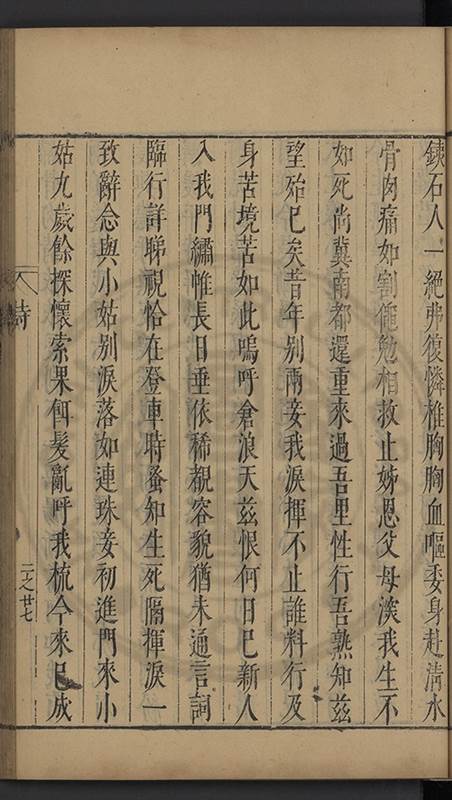 鐵石人一絕弗復憐椎胸胸血嘔委身赴清水
骨肉痛如割僶勉相救止姊恩父母深我生不
如死尚冀南都還重來過吾里性行吾熟知茲
望殆已矣昔年別兩妾我淚揮不止誰料行及
身苦境苦如此嗚呼倉浪天茲恨何日已新人
入我門繡帷長日垂依稀覩容貌猶未通言詞
臨行詳睇視恰在登車時蚤知生死隔揮淚一
致辭念與小姑別淚落如連珠妾初進門來小
姑九歲餘探懷索果餌髮亂呼我梳今來已成
詩
二之廿七